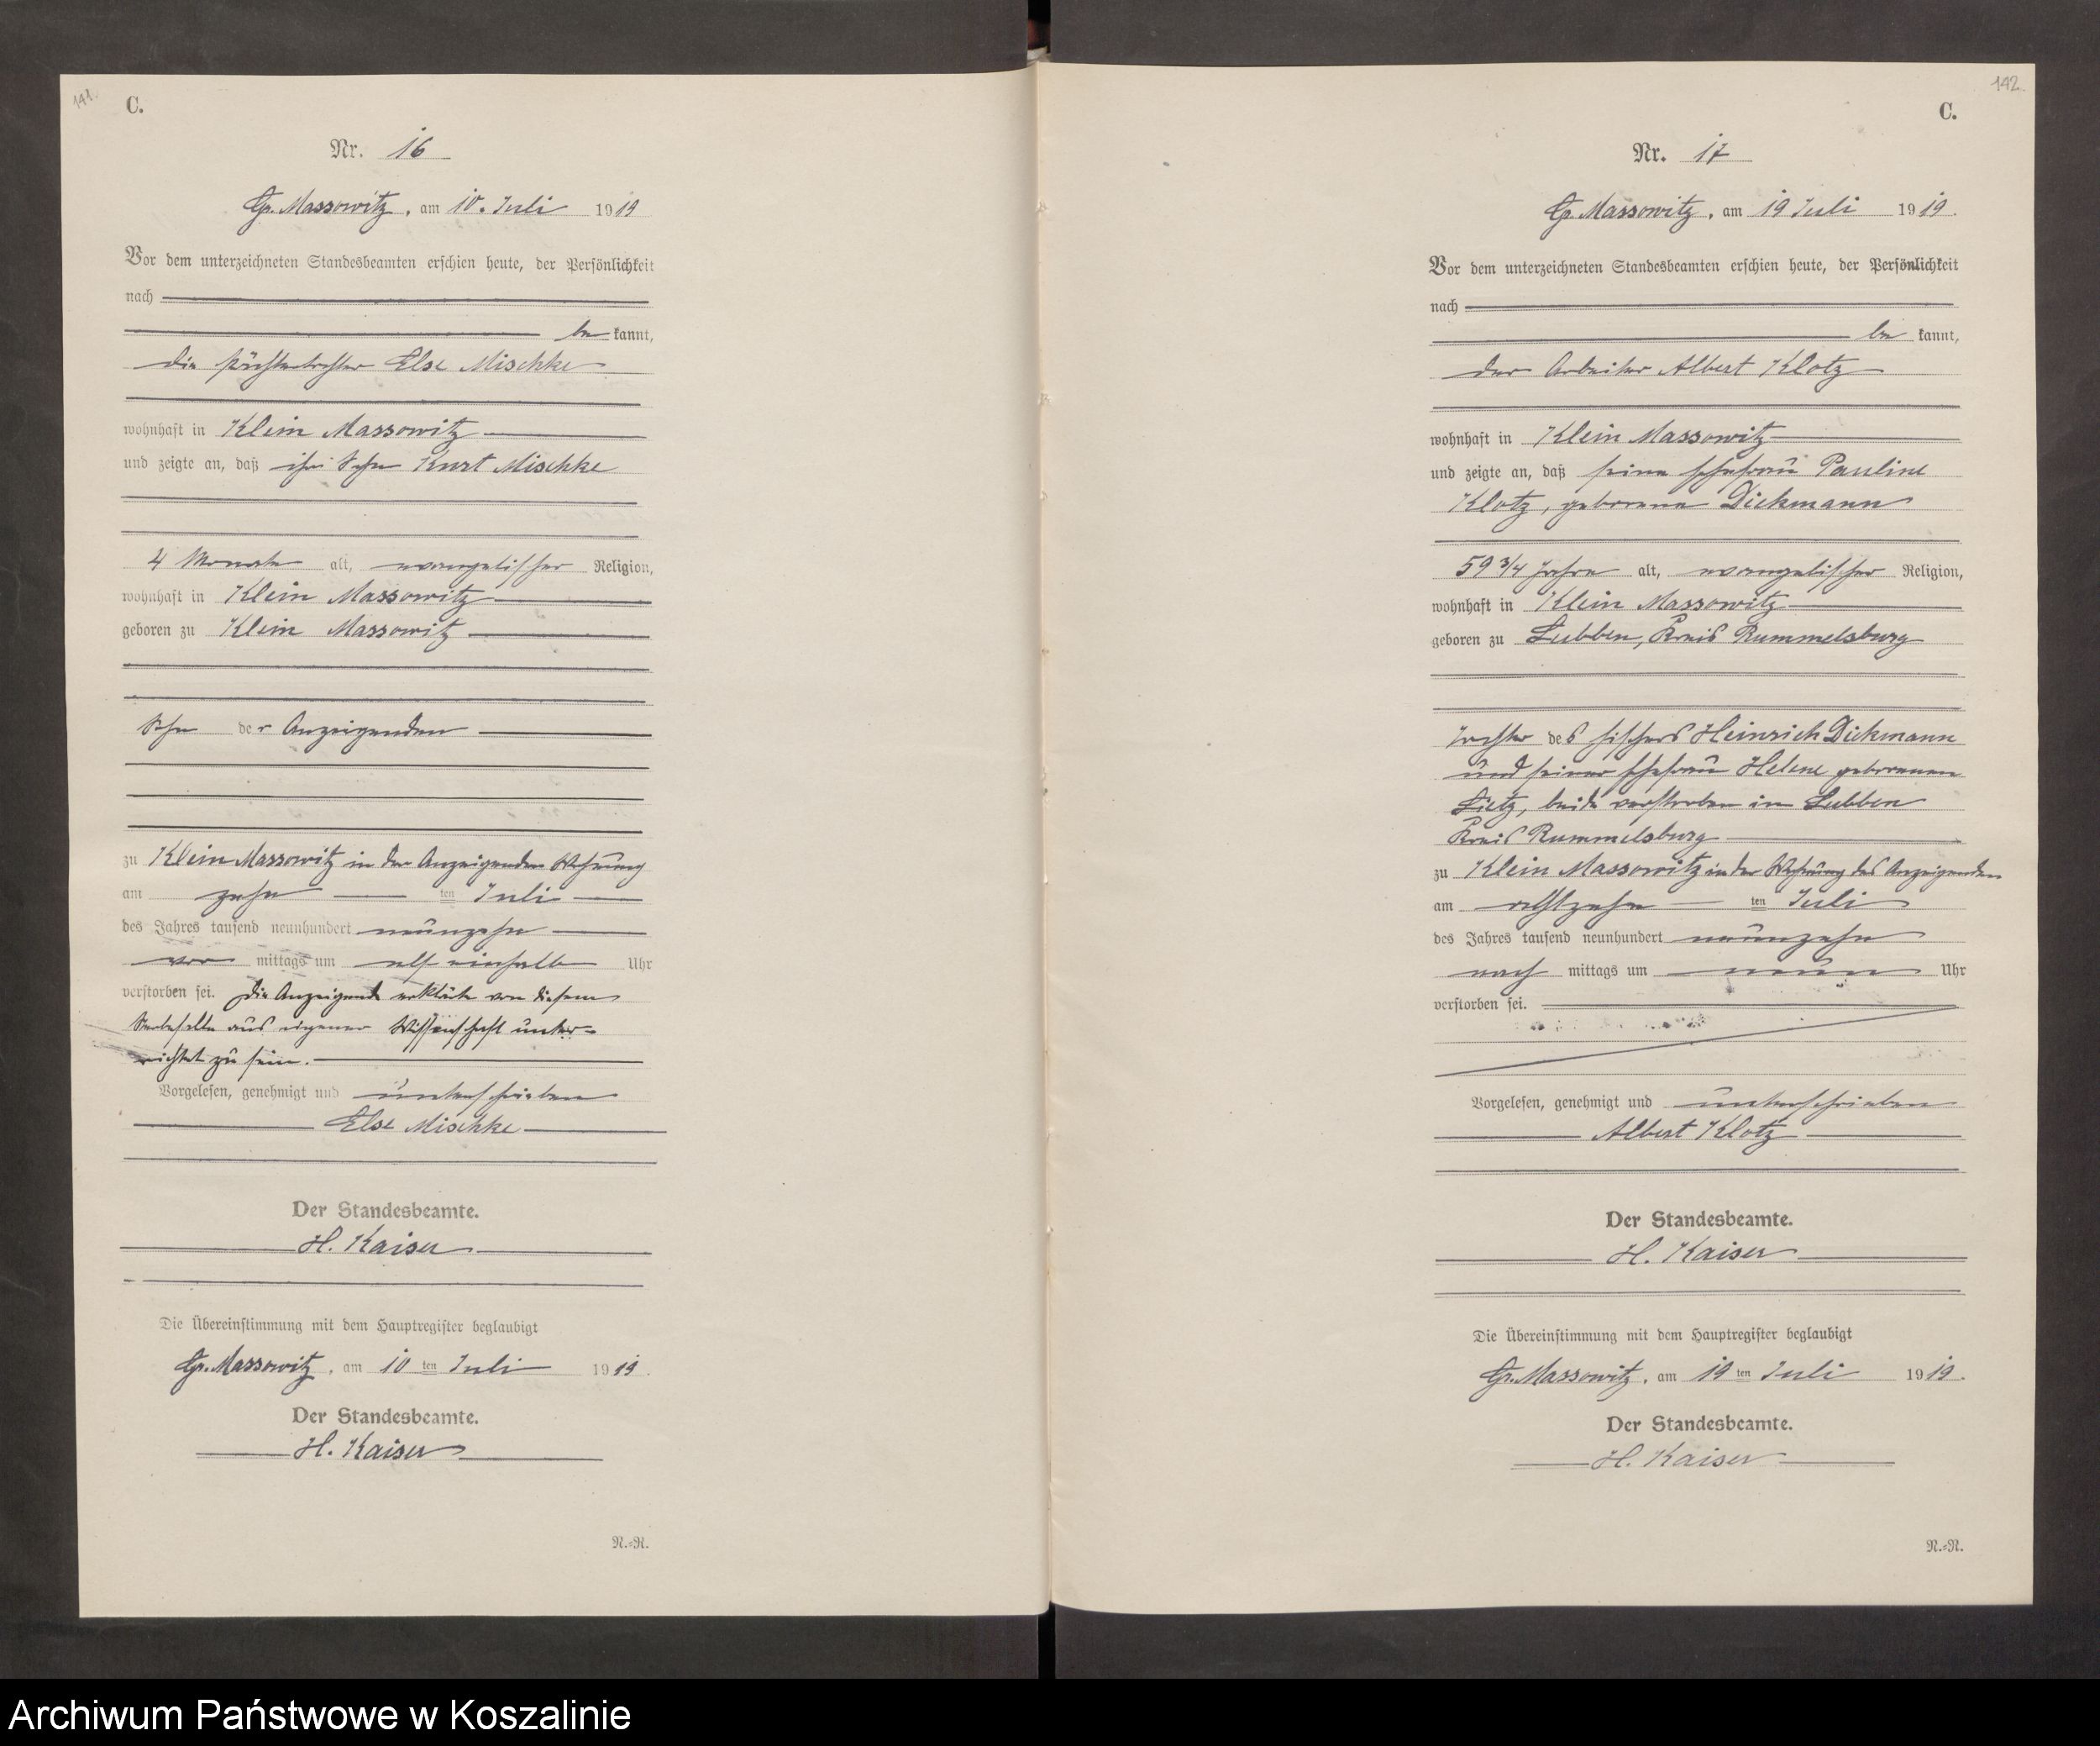 141.
C.
Nr. 16
Gr. Massowitz, am 10. Juli 1919
Vor dem unterzeichneten Standesbeamten erschien heute, der Persönlichkeit
nach
be kannt,
die Pächtertochter Else Mischke
wohnhaft in Klein Massowitz
und zeigte an, daß ihr Sohn Kurt Mischke
4 Monate alt, evangelischer Religion,
wohnhaft in Klein Massowitz
geboren zu Klein Massowitz
Sohn der Anzeigenden
zu Klein Massowitz in der Anzeigenden Wohnung
am zehn ten Juli
des Jahres tausend neunhundert neunzehn
vor mittags um elf einhalb Uhr
verstorben sei. Die Anzeigende erklärte von diesem
Sterbefalle aus eigener Wissenschaft unter=
richtet zu sein.
Vorgelesen, genehmigt und unterschrieben
Else Mischke
Der Standesbeamte.
H. Kaiser
Die Übereinstimmung mit dem Hauptregister beglaubigt
Gr. Massowitz, am 10 ten Juli 1919.
Der Standesbeamte.
H. Kaiser
N.=R.
142.
C.
Nr. 17
Gr. Massowitz, am 19 Juli 1919.
Vor dem unterzeichneten Standesbeamten erschien heute, der Persönlichkeit
nach
be kannt,
der Arbeiter Albert Klotz
wohnhaft in Klein Massowitz
und zeigte an, daß seine Ehefrau Pauline
Klotz, geborene Dickmann
59 3/4 Jahre alt, evangelischer Religion,
wohnhaft in Klein Massowitz
geboren zu Lubben, Kreis Rummelsburg
Tochter des Fischers Heinrich Dickmann
und seiner Ehefrau Helene geborenen
Lietz, beide verstorben in Lubben
Kreis Rummelsburg
zu Klein Massowitz in der Wohnung des Anzeigenden
am achtzehn ten Juli
des Jahres tausend neunhundert neunzehn
nach mittags um neun Uhr
verstorben sei.
Vorgelesen, genehmigt und unterschrieben
Albert Klotz
Der Standesbeamte.
H. Kaiser
Die Übereinstimmung mit dem Hauptregister beglaubigt
Gr. Massowitz, am 19 ten Juli 1919.
Der Standesbeamte.
H. Kaiser
N.=R.
Archiwum Państwowe w Koszalinie